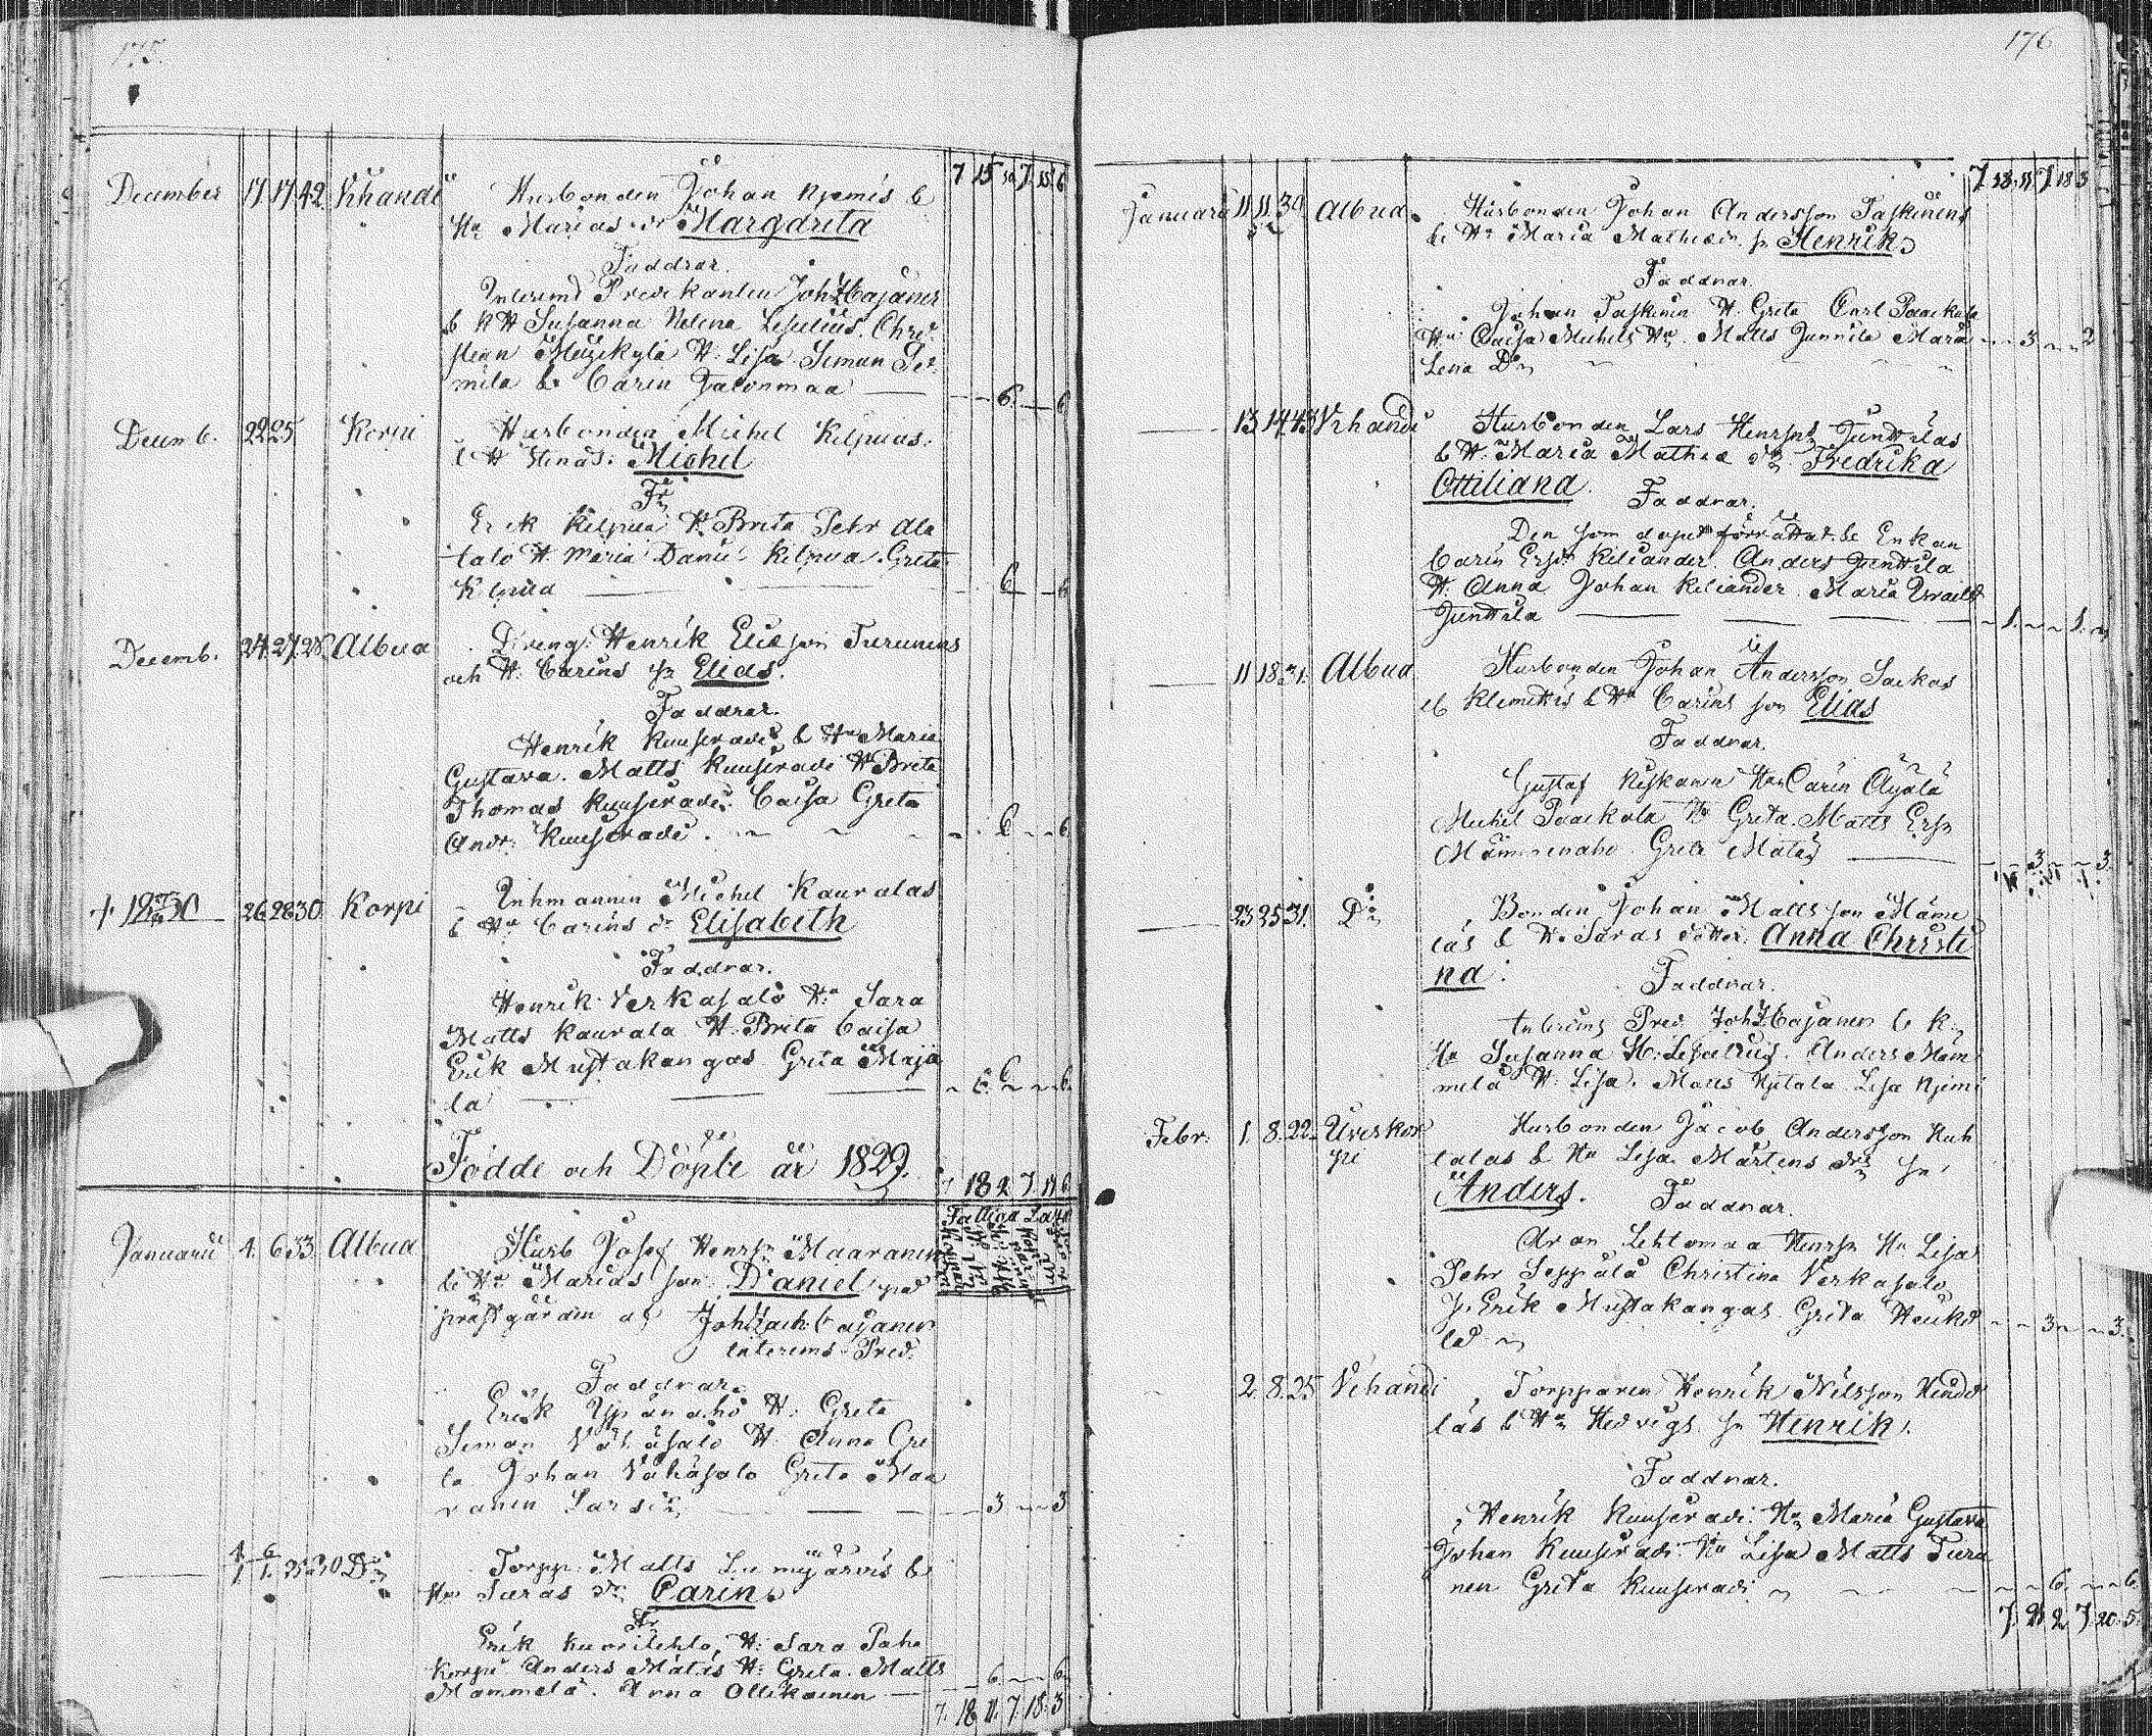 175.
7 15 10 7. 15 6
December 17. 17. 42. Vihandi Husbonden Johan Njemis &
Hu Marias dr Margareta
Faddrar.
Interims Predikanten Joh Z Cajaner
& K H Susanna Helena Lesselius. Chri
stian H. Lisa Siman
mila & Carin Jaconmaa — 6. — 6
Decemb. 22 25 Korpi Husbonden Michel Kilpuas
& H Stinas: Michel
Fr
Erik Kilpua H. Brita Pehr Ala
talo H. Maria Daniel Kilpua. Greta
Kilpua — 6 — 6
Decemb. 27. 27. 28. Albua Dreng. Henrik Eliæson Turunens
och H. Carins sn Elias.
Faddrar.
Henrik Kuuseradi & Hu Maria
Gustava. Matts Kuuseradi H Brita
Thomas Kuuseradi. Caisa Greta
Andr: Kuuseradi. 6 6
26. 28 30. Korpi Inhmannen Michel Kauralas
& Hu Carins dr Elisabeth
Faddrar.
Henrik Verkasalo Hu Sara
Matts Kaurala H. Brita Caisa
Erik Mustakangas Greta Maja
la — 6 6.
Födde och Döpte år 1829. 7. 18 2 7. 11 6
Januarii 4. 6 33. Albua Husb Josef Henrsn Maaranen
& Hu Marias son Daniel på
prästgården af Joh Zach: Cajaner
interims-Pred.
Faddrar.
Erik Ypänaho H: Greta
Siman Vähäsalo H. Anna Gre
ta Johan Vähäsalo Greta Maa
ranen Larsdr — 3 — 3
— D:o Torpp. Matts Lumijärvis &
Hu Saras dr Carin.
Fr
Erik Kuorilehto, H: Sara Paha
korpi Anders Matas H: Greta. Matts
Mammela. Anna Ollikainen — 6 — 6
7. 18. 11. 7. 18. 3
176
7. 18. 11. 7 18 3
Januarii 11. 11. 30. Albua. Husbonden Johan Andersson Taskinens
& Hu Maria Mathiædr. sn Henrik
Faddrar.
Johan Taskinen H. Greta Carl Paakola
Hu Caisa Michels Hu Matts Junnila Maria
Lena Dr 3 2
— 13. 14. 43 Vihandi Husbonden Lars Henrsns Junttilas
& H. Maria Mathiæ dr. Fredrika
Ottiliana. Faddrar.
Den som dopet förrättat & Enkan
Carin Ersdr Keliander. Anders Junttila
H. Anna Johan Keliander. Maria Israelsdr
Junttila — 1. 1.
— 11 18 31. Albua Husbonden Johan Andersson Saekas
el Klemettis & Hu Carins son Elias
Faddrar.
Gustaf Niskanen Hu Carin Äijälä
Michel Paakola Hu Greta. Matts Ersn
Mämmenaho. Greta Matas — 3. 3.
— 23 25 31. D:o Bonden Johan Mattsson Mäme
läs & H. Saras dotter Anna Christi
na: Faddrar.
Interims Pred. Joh Z Cajaner & K.
Hu Susanna H: Lesselius. Anders Mäm
melä H. Lisa. Matts Lisa Njemi
Febr. 1. 8. 22. Öfverskor
pi Husbonden Jacob Andersson Huh
talas & Hu Lisa Mårtens drs sn
Anders. Faddrar.
Aron Lehtomaa Henrsn Hu Lisa
Pehr Seppälä Christina Verkasalo
J. Erik Mustakangas Greta Heikki
lä 3 3.
2. 8. 25 Vihandi Torpparen Henrik Nilsson
läs & Hu Hedvigs. sn Henrik.
Faddrar.
Henrik Kuuseradi. Hu Maria Gustava
Johan Kuuseradi Hu Lisa Matts Turu
nen Greta Kuuseradi 6. 6.
7. 21 2 7. 20. 5